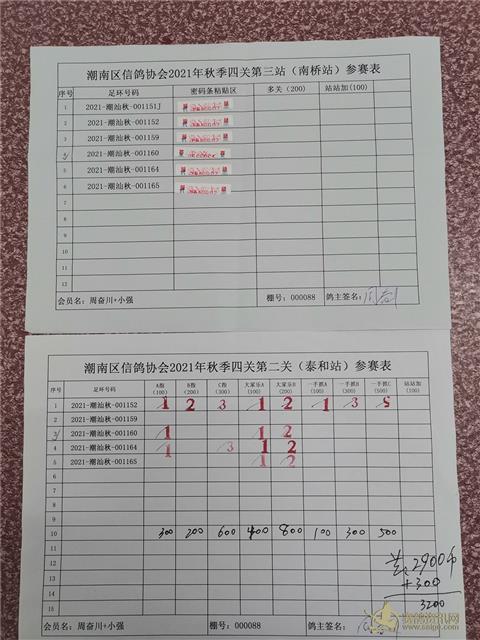 潮南区信鸽协会2021年秋季四关第三站（南桥站）参赛表
序号 足环号码 密码条粘贴区 多关（200） 站站加(100)
1 2021-潮汕秋-001151J
2 2021-潮汕秋-001152
3 2021-潮汕秋-001159
2021-潮汕秋-001160
5 2021-潮汕秋-001164
6 2021-潮汕秋-001165
7
8
9
10
11
12
会员名：周奋川+小强 棚号：000088 鸽主签名：
潮南区信鸽协会2021年秋季四关第二关（泰和站）参赛表
序号 足环号码 A指(100) B指(200) C指(300) 大家乐A(100) 大家乐B(200) 一手抓A(100) 一手抓B(300) 一手抓C(500) 站站加(100)
1 2021-潮汕秋-001152 1 2 3 1 2 1 3 5
2 2021-潮汕秋-001159
2021-潮汕秋-001160 1 1 2
4 2021-潮汕秋-001164 1 3 1 2
5 2021-潮汕秋-001165 1 2
6
7
8
9
10 300 200 600 400 800 100 300 500
11
12
13 2900
14 +300
3200
15
会员名：周奋川+小强 棚号：000088 鸽主签名：